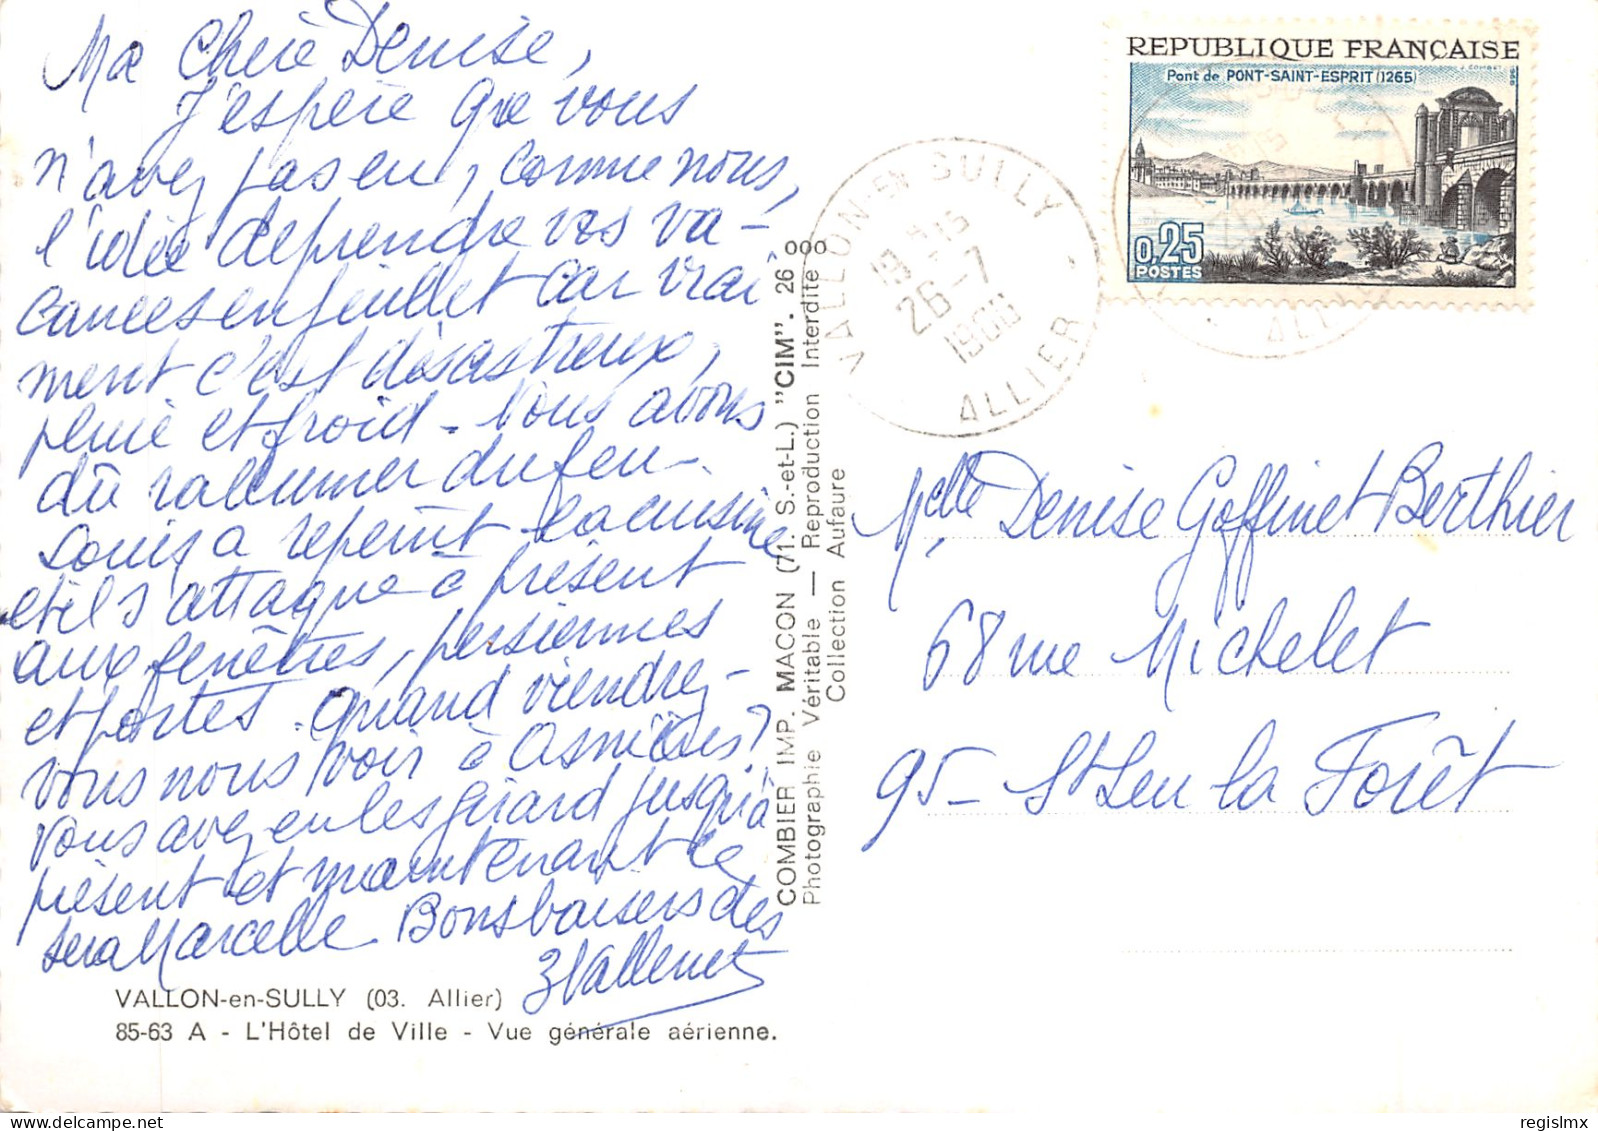 Ma Chère Denise,
J'espère que vous
n'avez pas eu, comme nous,
l'idée de prendre vos va-
cances en juillet car vrai
ment c'est désastreux,
pluie et froid. Nous avons
dû rallumer du feu.
Louis a repeint la cuisine
et il s'attaque à présent
aux fenêtres, persiennes
et portes. Quand viendrez-
vous nous voir à Asnières?
Vous avez eu les Girard jusqu'à
présent et maintenant ce
sera Marcelle. Bons baisers des
3 Vallenet
VALLON-en-SULLY (03. Allier)
85-63 A - L'Hôtel de Ville - Vue générale aérienne.
COMBIER IMP. MACON (71. S.-et-L.) "CIM". 26 ooo
Photographie Véritable — Reproduction Interdite
Collection Aufaure
VALLON-EN-SULLY
26-7
ALLIER
REPUBLIQUE FRANÇAISE
Pont de PONT-SAINT-ESPRIT (1265)
0,25
POSTES
ALLIER
Melle Denise Goffinet Berthier
68 rue Michelet
95 - St Leu la Forêt
regislmx